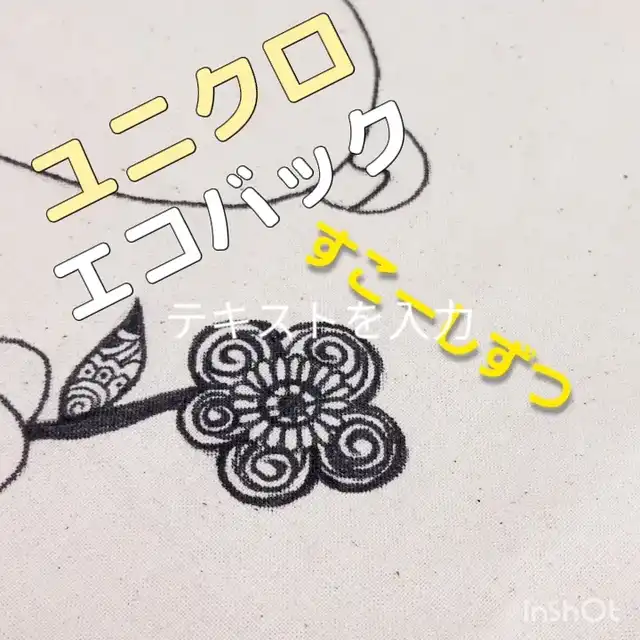 ユニクロ
エコバック
すこーしずつ
テキストを入力
InShOt